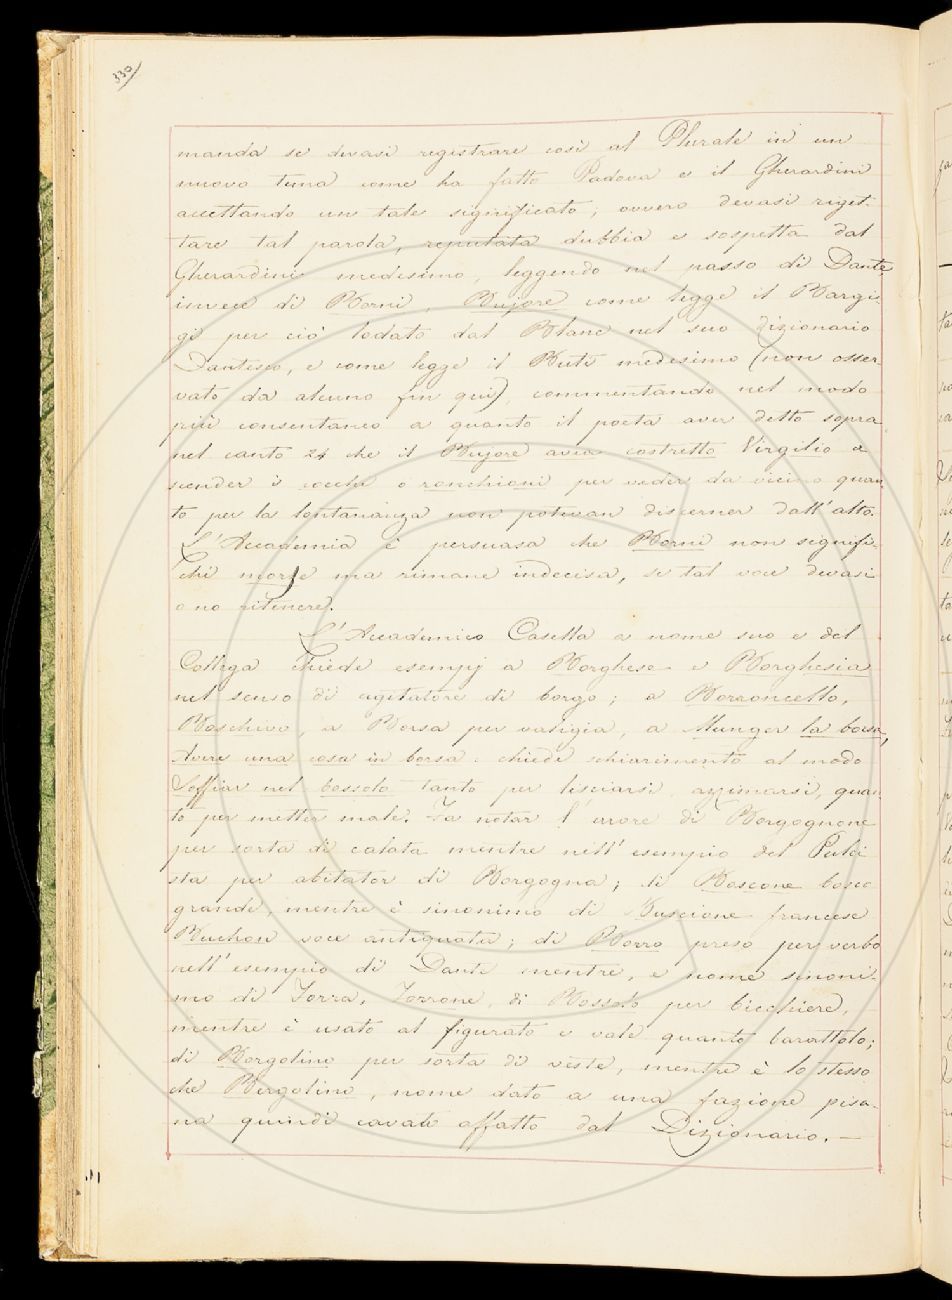 330
manda se devasi registrare così al Plurale in un
nuovo tema come ha fatto Padova e il Gherardini
accettando un tale significato; ovvero devasi riget-
tare tal parola, reputata dubbia e sospetta dal
Gherardini medesimo, leggendo nel passo di Dante
invece di Borni, Bujore come legge il Bargi-
gi per ciò lodato dal Blanc nel suo dizionario
Dantesco, e come legge il Buti medesimo (non osser-
vato da alcuno fin qui), commentando nel modo
più consentaneo a quanto il poeta aver detto sopra
nel canto 24 che il Bujore avea costretto Virgilio a
scender i rocchi o ronchioni per veder da vicino quan-
to per la lontananza non potevan discerner dall'alto.
L'Accademia è persuasa che Borni non signifi-
chi morse ma rimane indecisa, se tal voce devasi
o no ritenere.
L'Accademico Casella a nome suo e del
Collega chiede esempj a Borghese e Borghesia
nel senso di agitatore di borgo; a Borroncello,
Boschivo, a Borsa per valigia, a Munger la borsa,
Avere una cosa in borsa: chiede schiarimento al modo
Soffiar nel bossolo tanto per lisciarsi, azzimarsi, quan-
to per metter male. Fa notar l'errore di Borgognone
per sorta di calata mentre nell'esempio del Pulci
sta per abitator di Borgogna; di Boscone bosco
grande, mentre è sinonimo di Buscione francese
Buchon voce antiquata; di Borro preso per verbo
nell'esempio di Dante mentre, è nome sinoni-
mo di Forra, Forrone, di Bossolo per bicchiere,
mentre è usato al figurato e vale quanto barattolo;
di Borgolino per sorta di veste, mentre è lo stesso
che Bergolino, nome dato a una fazione pisa-
na quindi cavate affatto dal Dizionario. —